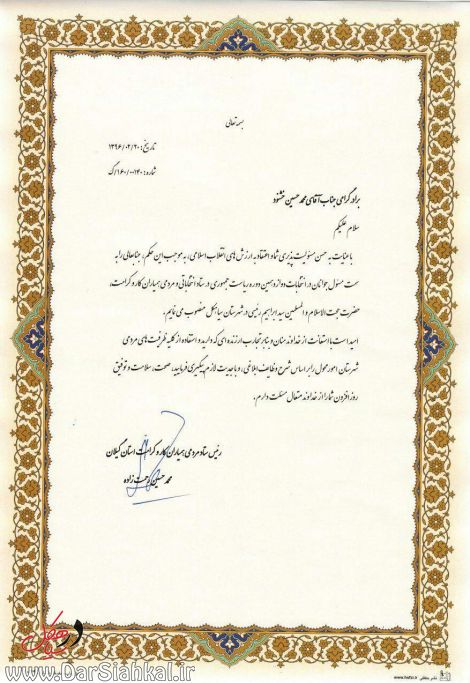 بسمه تعالی
تاریخ: ۱۳۹۶/۰۲/۲۰
شماره: ۱۴۰-/۱۶۰/گ
برادر گرامی جناب آقای محمد حسین خشنود
سلام علیکم
با عنایت به حسن مسئولیت پذیری شما و اعتقاد به ارزش های انقلاب اسلامی، به موجب این حکم، جنابعالی را به
سمت مسئول جوانان در انتخابات دوازدهمین دوره ریاست جمهوری در ستاد انتخاباتی و مردمی همیاران کار و کرامت،
حضرت حجت الاسلام و المسلمین سید ابراهیم رئیسی در شهرستان سیاهکل منصوب می نمایم.
امید است با استعانت از خداوند منان و بنابر تجارب ارزنده ای که دارید و استفاده از کلیه ظرفیت های مردمی
شهرستان امور محول را بر اساس شرح وظایف ابلاغی، و با جدیت لازم پیگیری فرمایید، صحت، سلامت و توفیق
روز افزون شما را از خداوند متعال مسئلت دارم.
رئیس ستاد مردمی همیاران کار و کرامت استان گیلان
محمد حسین حجت زاده
www.hafzi.ir
www.DarSiahkal.ir